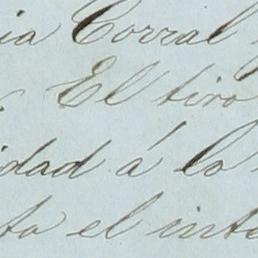 ia Corral
El tiro
idad á lo
to el inte